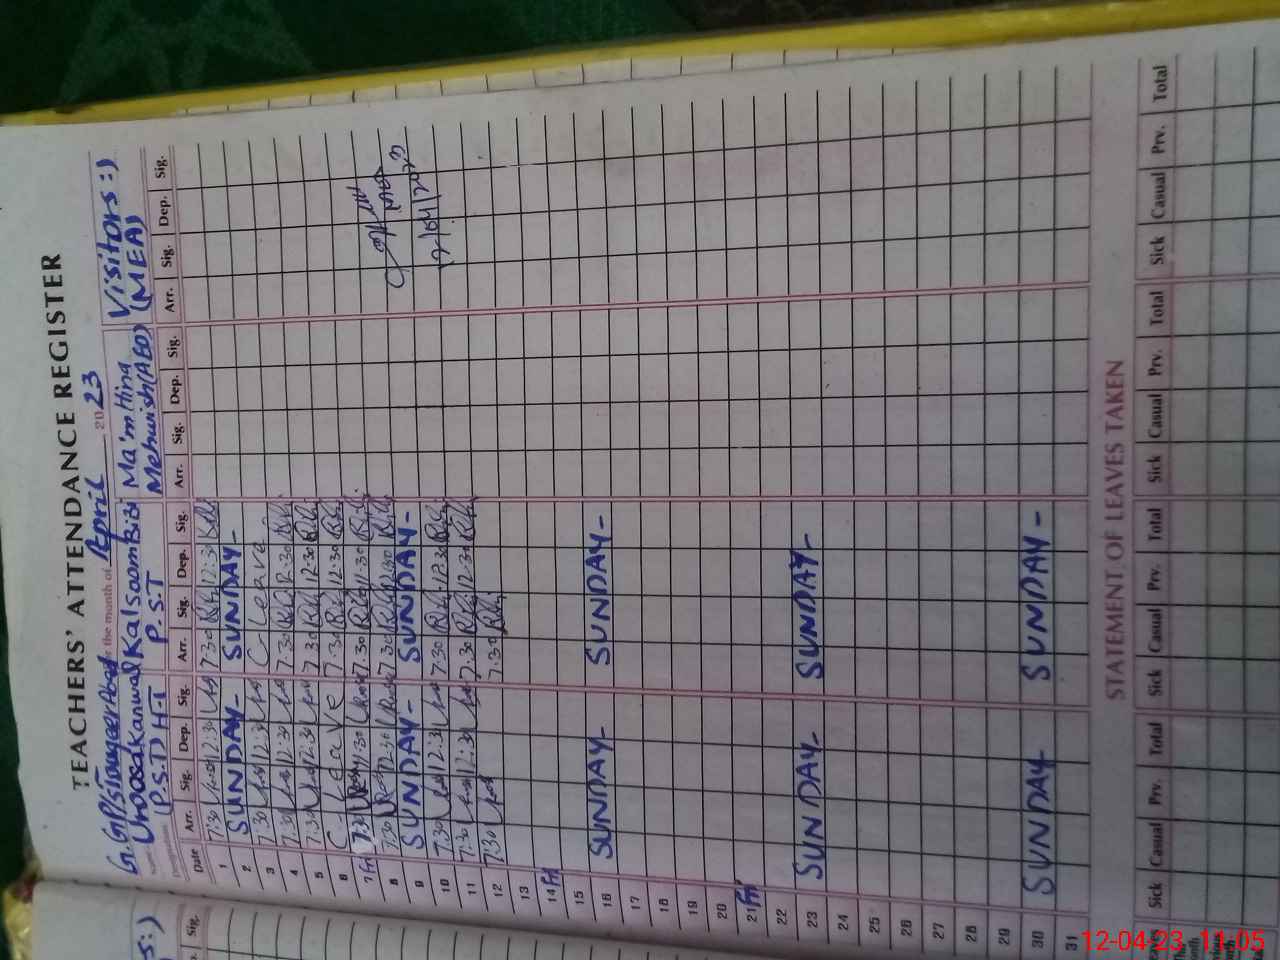 TEACHERS' ATTENDANCE REGISTER
for the month of April 2023
Unoosa Kanwal Kalsoom Bibi Ma'm Hina Visitors :)
(P.S.T) H-T P.S.T Mehwish (AEO) (MEA)
Date Arr. Sig. Dep. Sig. Arr. Sig. Dep. Sig. Arr. Sig. Dep. Sig. Arr. Sig. Dep. Sig.
1 7:30 12:30 7:30 12:30
2 SUNDAY- SUNDAY-
3 7:30 12:30 C-Leave
4 7:30 12:30 7:30 12:30
5 7:30 12:30 7:30 12:30
6 C-Leave 7:30 12:30
7 Fri 7:30 11:30 7:30 11:30
8 7:30 12:30 7:30 12:30
9 SUNDAY- SUNDAY-
10 7:30 12:30 7:30 12:30 12/04/2023
11 7:30 12:30 7:30 12:30
12 7:30 7:30
13
14 Fri
15
16 SUNDAY- SUNDAY-
17
18
19
20
21 Fri
22
23 SUNDAY- SUNDAY-
24
25
26
27
28
29
30 SUNDAY SUNDAY-
31
STATEMENT OF LEAVES TAKEN
Sick Casual Prv. Total Sick Casual Prv. Total Sick Casual Prv. Total Sick Casual Prv. Total
12-04-23 11:05